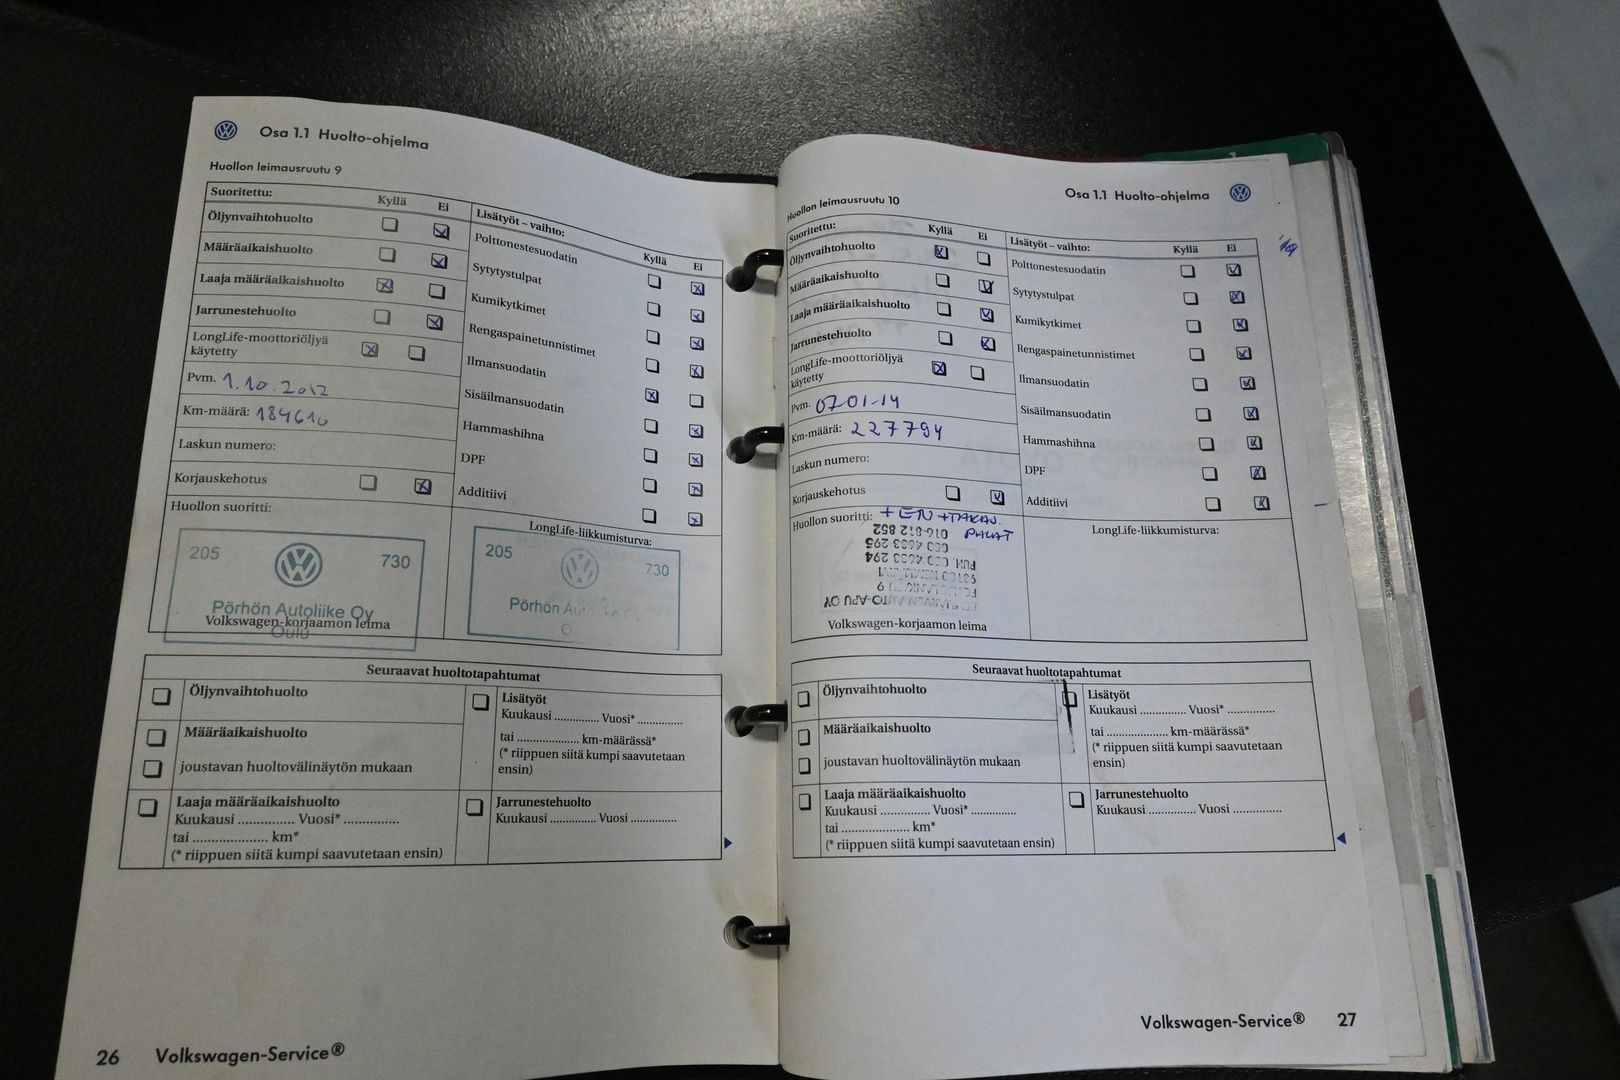 Osa 1.1 Huolto-ohjelma
Huollon leimausruutu 9
Suoritettu:
Kyllä Ei
Öljynvaihtohuolto
Määräaikaishuolto
Laaja määräaikaishuolto
Jarrunestehuolto
LongLife-moottoriöljyä
käytetty
Pvm. 1.10.2012
Km-määrä: 184610
Laskun numero:
Korjauskehotus
Huollon suoritti:
205 730
Pörhön Autoliike Oy
Oulu
Volkswagen-korjaamon leima
Lisätyöt – vaihto:
Kyllä Ei
Polttonestesuodatin
Sytytystulpat
Kumikytkimet
Rengaspainetunnistimet
Ilmansuodatin
Sisäilmansuodatin
Hammashihna
DPF
Additiivi
LongLife-liikkumisturva:
205 730
Pörhön
Seuraavat huoltotapahtumat
Öljynvaihtohuolto
Määräaikaishuolto
joustavan huoltovälinäytön mukaan
Laaja määräaikaishuolto
Kuukausi ............... Vuosi* ...............
tai .................... km*
(* riippuen siitä kumpi saavutetaan ensin)
Lisätyöt
Kuukausi ............... Vuosi* ...............
tai .................... km-määrässä*
(* riippuen siitä kumpi saavutetaan
ensin)
Jarrunestehuolto
Kuukausi ............... Vuosi ...............
26 Volkswagen-Service®
Osa 1.1 Huolto-ohjelma
Huollon leimausruutu 10
Suoritettu:
Kyllä Ei
Öljynvaihtohuolto
Määräaikaishuolto
Laaja määräaikaishuolto
Jarrunestehuolto
LongLife-moottoriöljyä
käytetty
Pvm. 07-01-14
Km-määrä: 227794
Laskun numero:
Korjauskehotus
Huollon suoritti: + EN + TAKAN.
PALAT
016-812 852
020 4633 295
PUH. 020 4633 294
AUTO-APU OY
Volkswagen-korjaamon leima
Lisätyöt – vaihto:
Kyllä Ei
Polttonestesuodatin
Sytytystulpat
Kumikytkimet
Rengaspainetunnistimet
Ilmansuodatin
Sisäilmansuodatin
Hammashihna
DPF
Additiivi
LongLife-liikkumisturva:
Seuraavat huoltotapahtumat
Öljynvaihtohuolto
Määräaikaishuolto
joustavan huoltovälinäytön mukaan
Laaja määräaikaishuolto
Kuukausi ............... Vuosi* ...............
tai .................... km*
(* riippuen siitä kumpi saavutetaan ensin)
Lisätyöt
Kuukausi ............... Vuosi* ...............
tai .................... km-määrässä*
(* riippuen siitä kumpi saavutetaan
ensin)
Jarrunestehuolto
Kuukausi ............... Vuosi ...............
Volkswagen-Service® 27